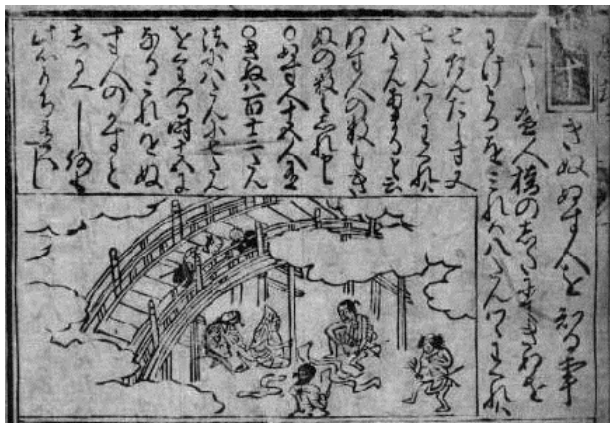 十
きぬぬす人を知る事
人橋の志たにてきぬを
わけとるをミれハ八たんつゝわれハ
七たんたらす又
七たんつゝわれハ
八たんあまると云
ぬす人の数もき
ぬの数もしれと
○ぬす人十五人有
○きぬハ百十三たん
法に八たんに七たん
を入る時十五に
なるこれをぬ
す人のかすと
志るへし何も